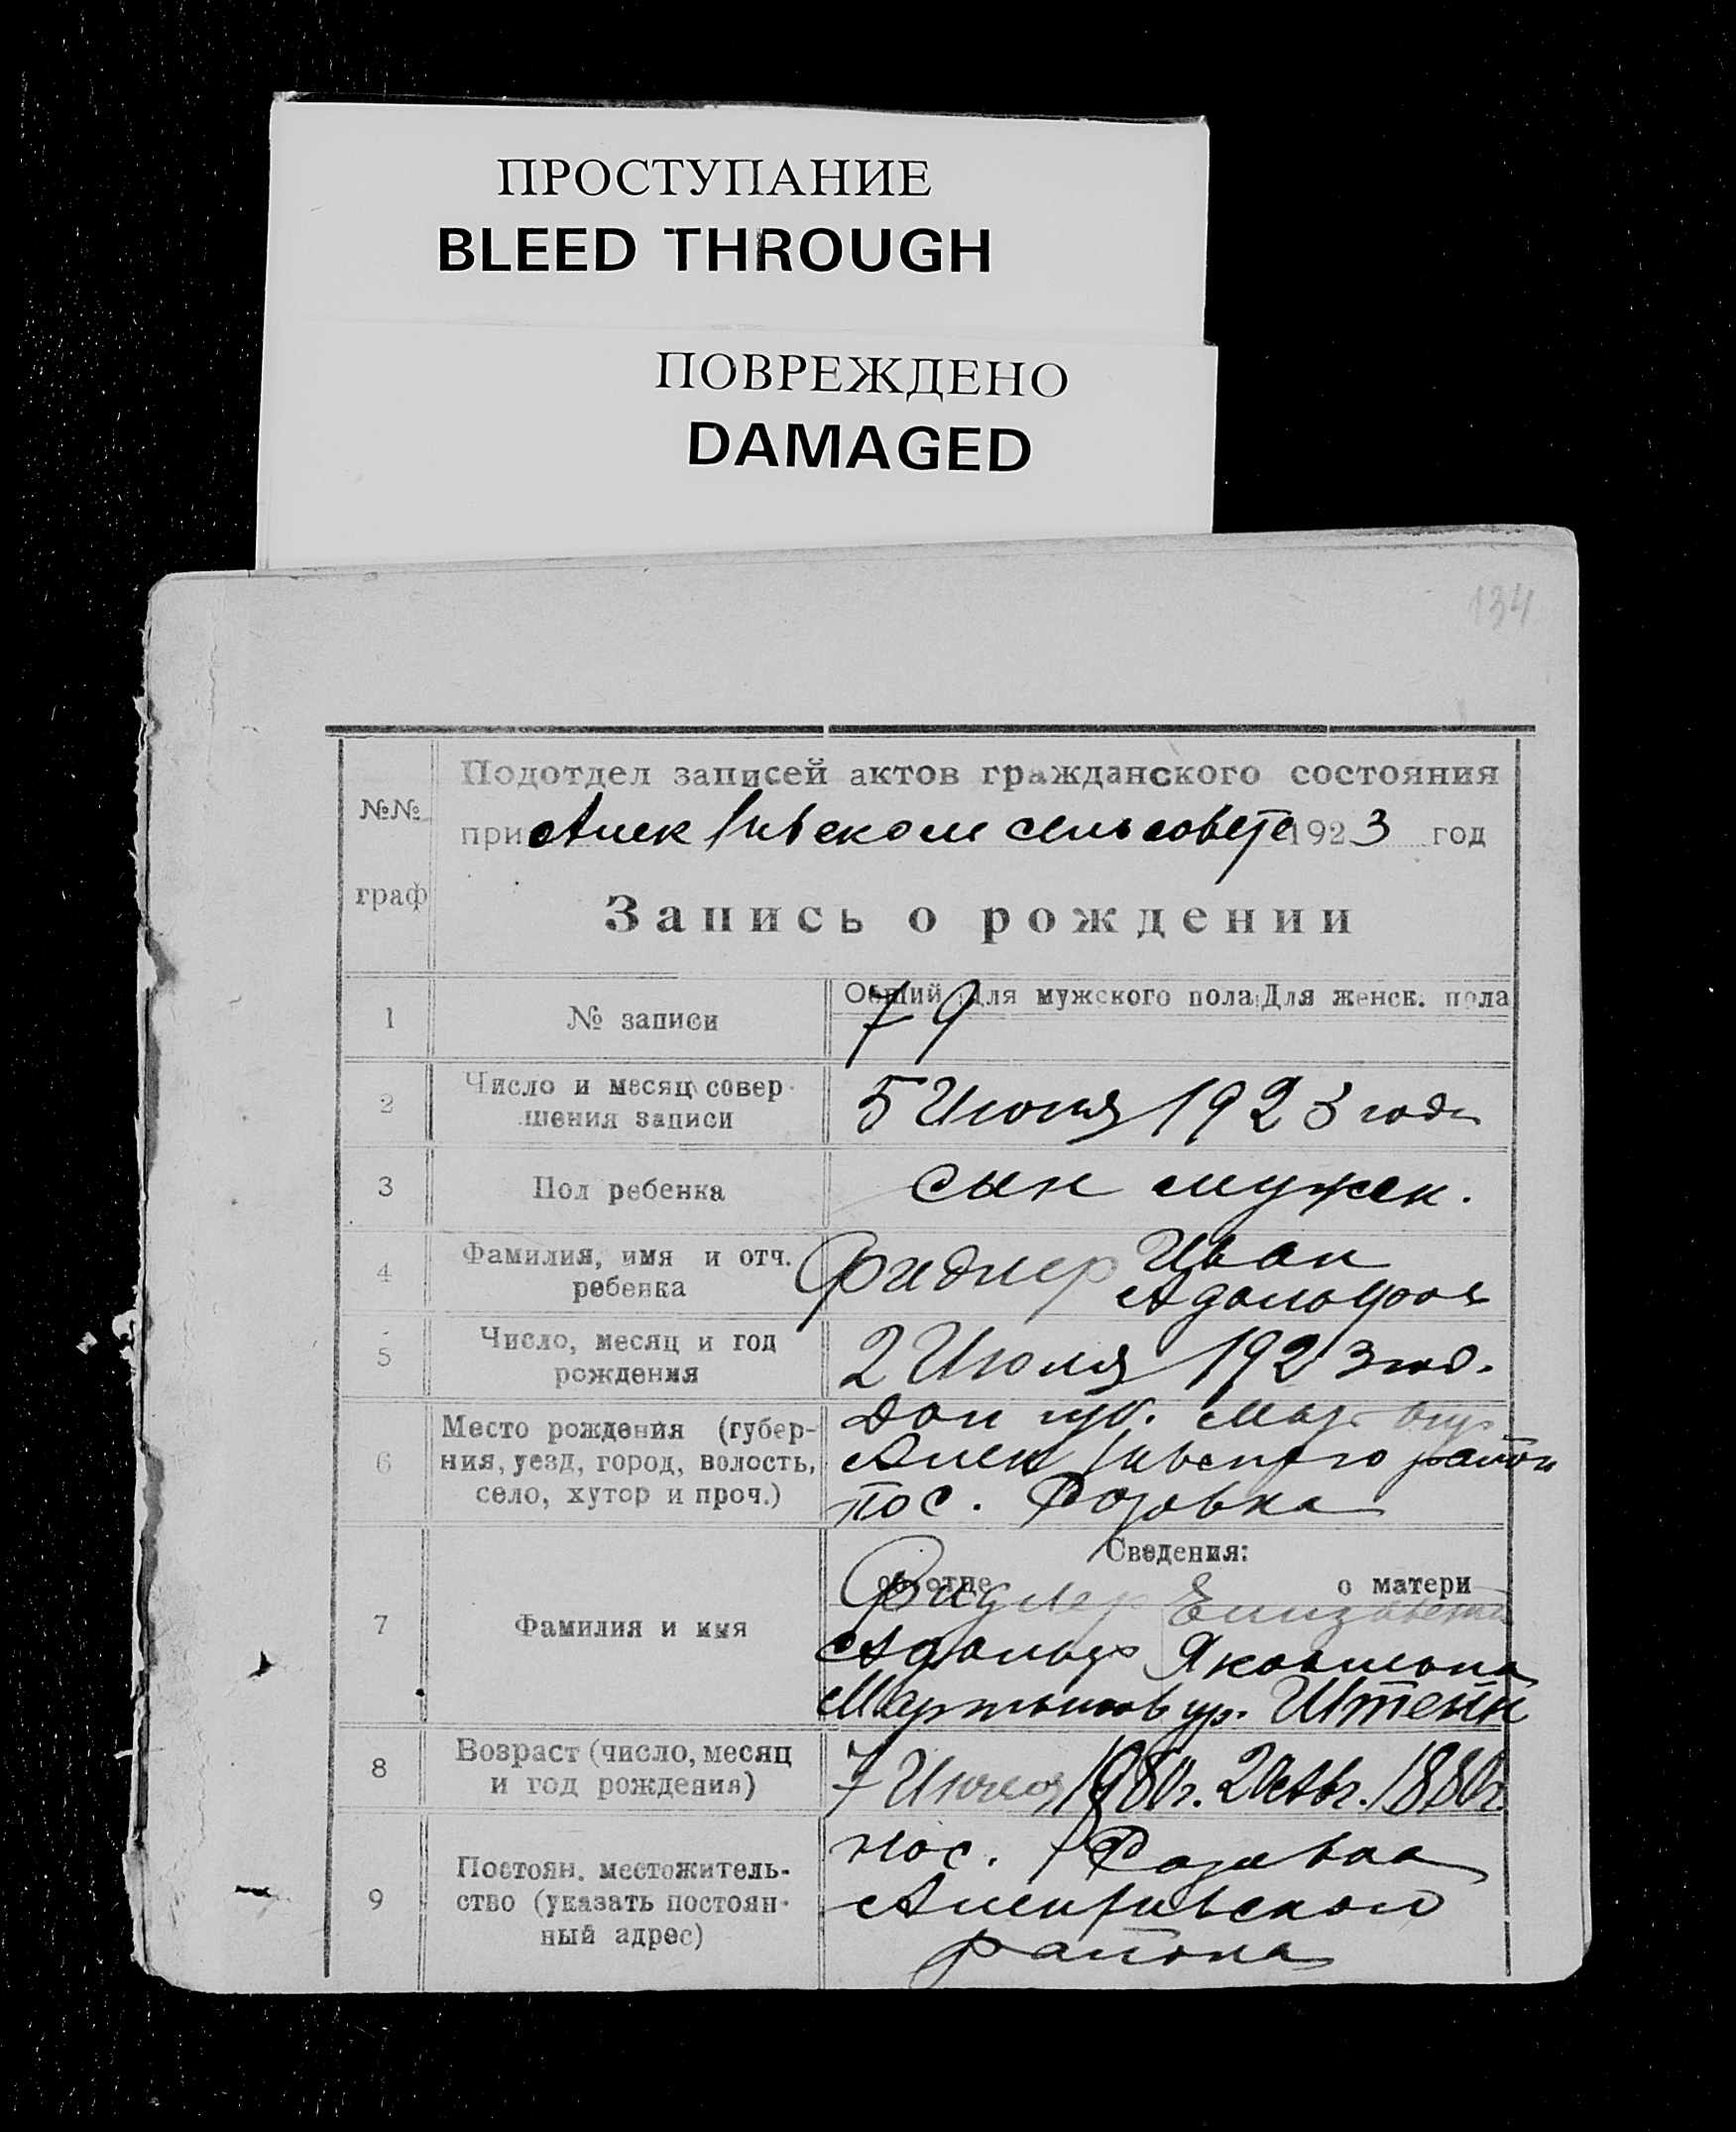 ПРОСТУПАНИЕ
BLEED THROUGH
ПОВРЕЖДЕНО
DAMAGED
134
Подотдел записей актов гражданского состояния
№№
при сельсовете 1923 год
граф
Запись о рождении
Общий Для мужского пола Для женск. пола
1 № записи 79
2 Число и месяц совер-
шения записи
5 1923 года
3 Пол ребенка сын мужск.
4 Фамилия, имя и отч.
ребенка
Фидлер Иван
5 Число, месяц и год
рождения
2 Июля 1923 год.
6 Место рождения (губер-
ния, уезд, город, волость,
село, хутор и проч.)
Дон губ.
район
пос. Розовка
Сведения:
об отце о матери
7 Фамилия и имя
Фидлер Елизавета
Адольф Яковлевна
ур. Штейн
8 Возраст (число, месяц
и год рождения)
7 1880г.
9 Постоян. местожитель-
ство (указать постоян-
ный адрес)
пос. Розовка
района